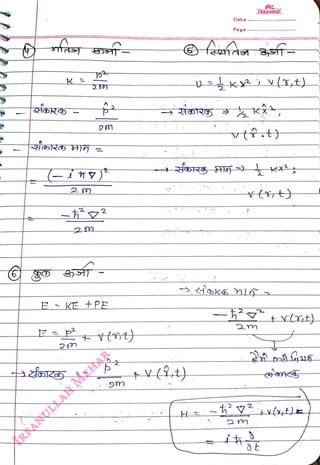 Date
Page
④ गतिज ऊर्जा -
K = p²/2m
- संकारक - p̂²/2m
- संकारक मान =
= (-iħ∇)²/2m
= -ħ²∇²/2m
⑤ स्थितिज ऊर्जा -
U = ½ Kx² ; V(r,t)
→ संकारक ⇒ ½ Kx̂²,
V(r̂,t)
→ संकारक मान ⇒ ½ Kx² ;
V(r,t)
⑥ कुल ऊर्जा -
E = KE + PE
E = p²/2m + V(r,t)
→ संकारक p̂²/2m + V(r̂,t)
→ संकारक मान =
-ħ²∇²/2m + V(r,t)
संकारक
H = -ħ²∇²/2m + V(r,t) =
= iħ ∂/∂t
IRFANULLAH MSHAR